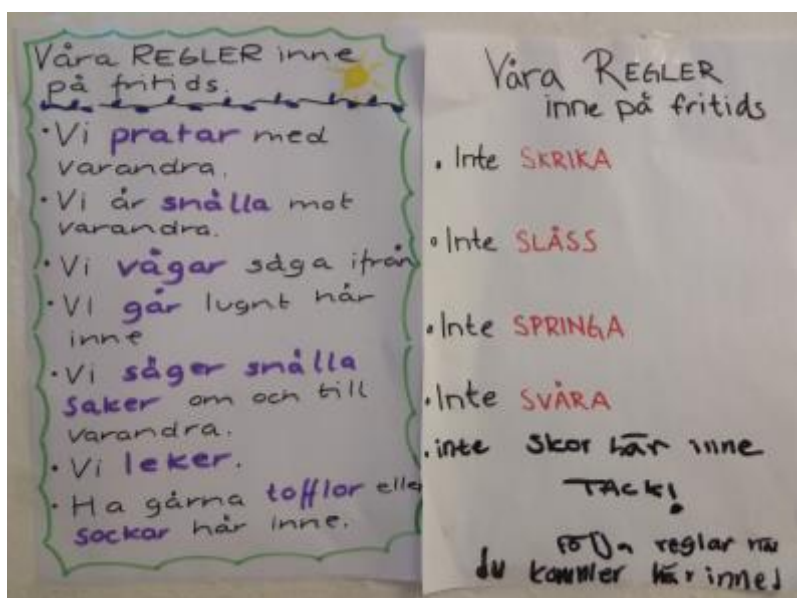 Våra REGLER inne
på fritids.
• Vi pratar med
varandra.
• Vi är snälla mot
varandra.
• Vi vågar säga ifrån
• Vi går lugnt här
inne
• Vi säger snälla
saker om och till
varandra.
• Vi leker.
• Ha gärna tofflor elle
sockar här inne.
Våra REGLER
inne på fritids
• Inte SKRIKA
• Inte SLÅSS
• Inte SPRINGA
• Inte SVÄRA
• inte skor här inne
TACK!
reglar när
du kommer här inne!